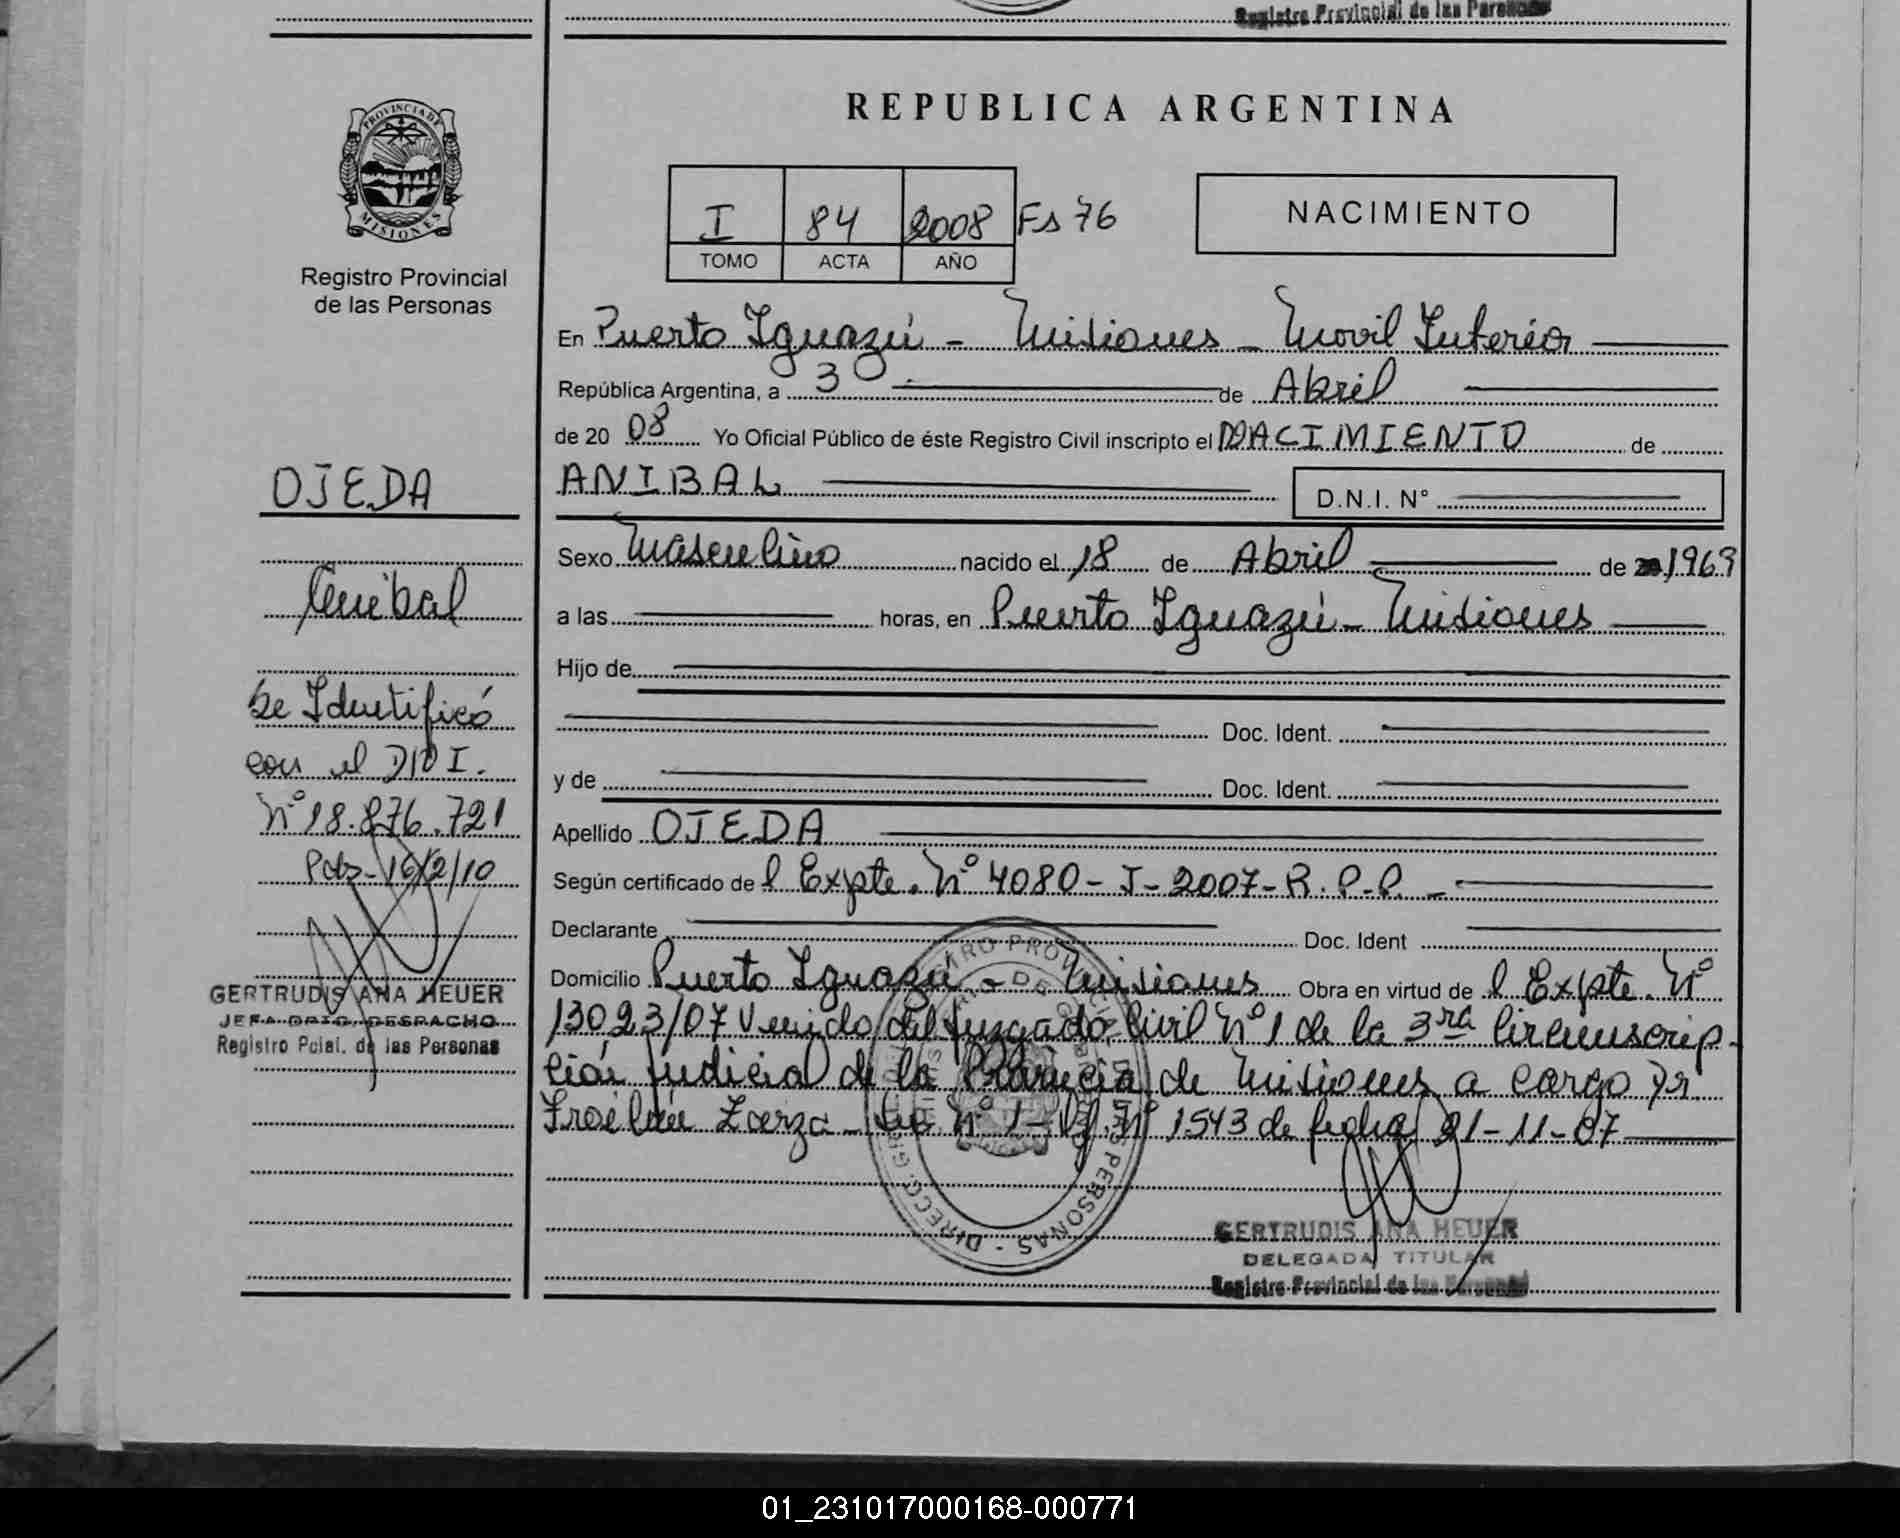 Registro Provincial de las Personas
PROVINCIA DE
MISIONES
Registro Provincial
de las Personas
REPUBLICA ARGENTINA
I 84 2008 Fs 76
TOMO ACTA AÑO
NACIMIENTO
En Puerto Iguazú - Misiones - Movil Interior
República Argentina, a 3 de Abril
de 20 08 Yo Oficial Público de éste Registro Civil inscripto el NACIMIENTO de
ANIBAL D.N.I. N°
Sexo Masculino nacido el 18 de Abril de 1969
a las horas, en Puerto Iguazú - Misiones
Hijo de
Doc. Ident.
y de Doc. Ident.
Apellido OJEDA
Según certificado de l Expte. N° 4080 - J - 2007 - R.P.P. -
Declarante Doc. Ident
Domicilio Puerto Iguazú - Misiones Obra en virtud de l Expte. N°
13023/07 Venido del Juzgado Civil N° 1 de la 3ra Circunscrip-
ción Judicial de la Provincia de Misiones a cargo Dr.
Froilán Zarza - N° 1 - N° 1543 de fecha 21-11-07
GERTRUDIS ANA HEUER
DELEGADA TITULAR
Registro Provincial de las Personas
OJEDA
Anibal
Se Identificó
con el DNI.
N° 18.876.721
Pdas - 16/2/10
GERTRUDIS ANA HEUER
JEFA DPTO. DESPACHO
Registro Pcial. de las Personas
01_231017000168-000771